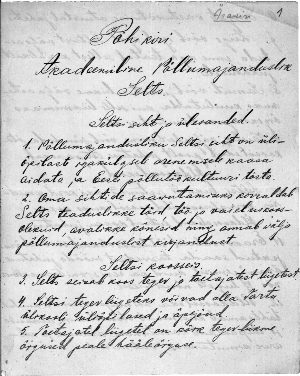 Ärakiri 1
Põhikiri
Akadeemiline Põllumajanduslik
Selts.
Seltsi siht ja ülesanded.
1. Põllumajandusliku Seltsi siht on üli-
õpilast igakülgsel arenemisele kaasa
aidata ja Eesti põllutöökultuuri tõsta.
2. Oma sihtide saavutamiseks korraldab
Selts teaduslikke töid, töö ja vaidluskoos-
olekuid, avalikke kõnesid ning annab välja
põllumajanduslist kirjandust.
Seltsi koosseis.
3. Selts seisab koos tegev ja toetajatest liigetest
4. Seltsi tegev liigeteks võivad olla Tartu
ülikooli üliõpilased ja õpejõud.
5. Toetajatel liigetel on kõik tegev-liikme
õigused peale hääleõiguse.